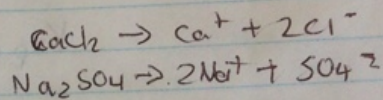 CaCl₂ → Ca⁺ + 2Cl⁻
Na₂SO₄ → 2Na⁺ + SO₄²